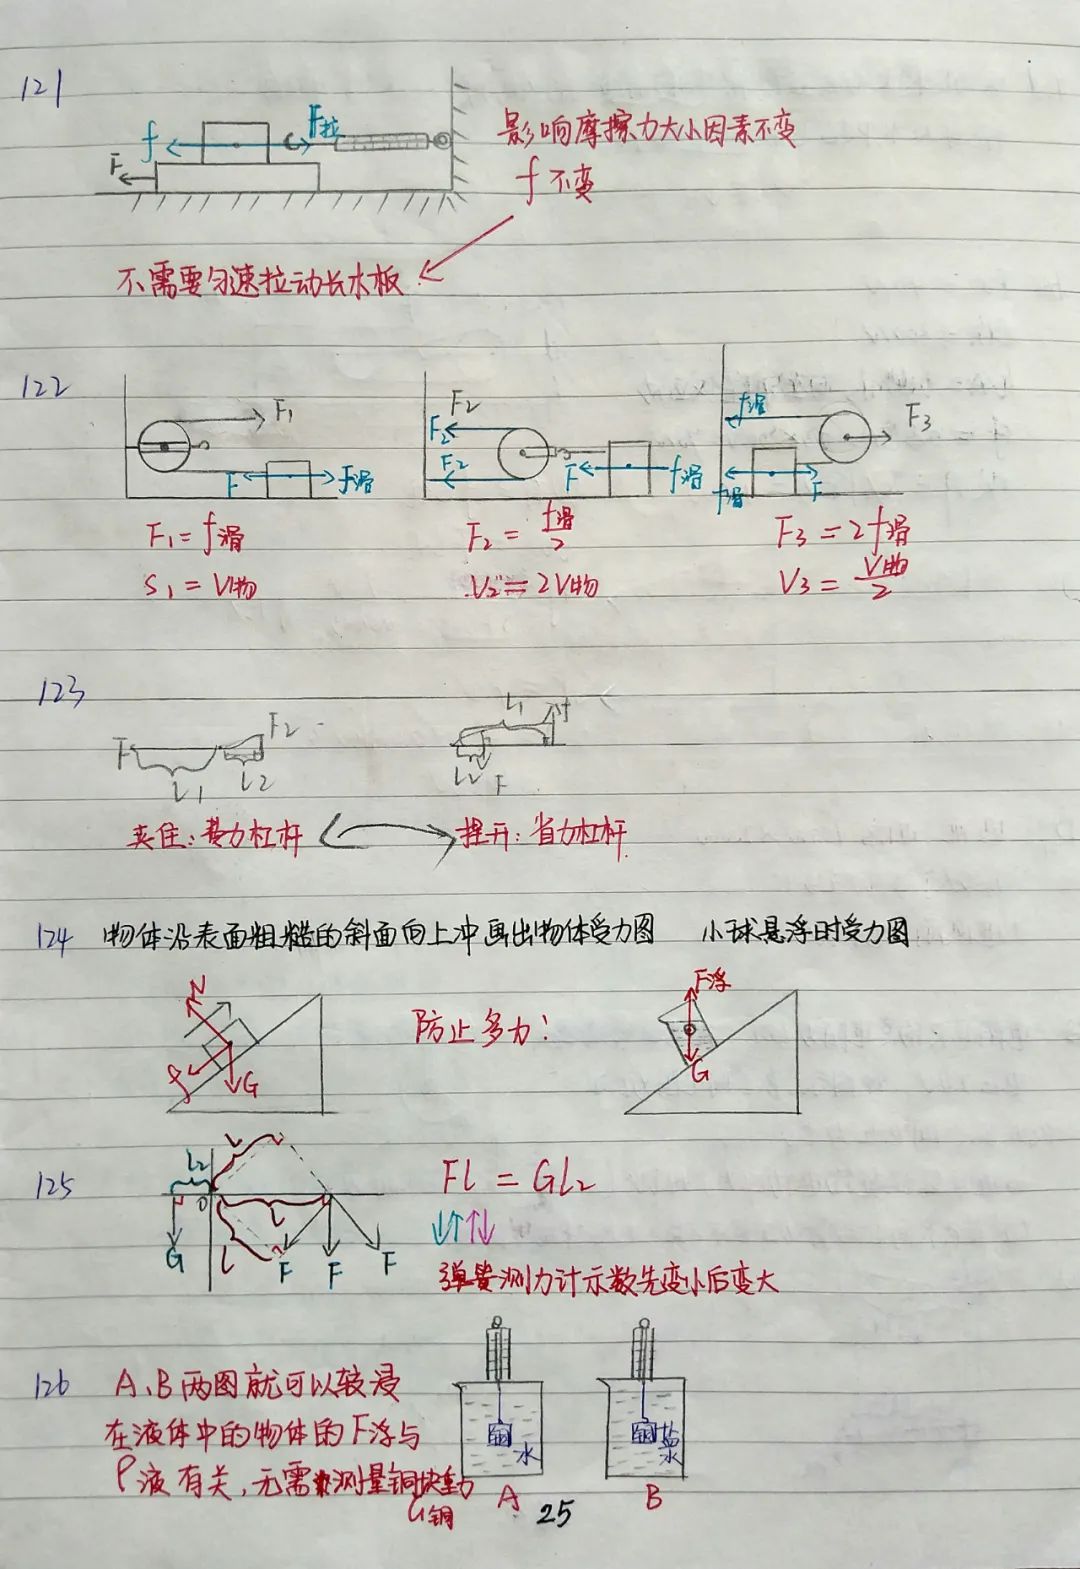 121
f
F拉
F
影响摩擦力大小因素不变
f 不变
不需要匀速拉动长木板
122
F₁
F
f滑
F₁ = f滑
S₁ = V物
F₂
F₂
F₂
F
f滑
F₂ = f滑/2
V₂ = 2V物
f滑
F₃
f滑
F
F₃ = 2f滑
V₃ = V物/2
123
F
F₂
L₁
L₂
夹住:费力杠杆
L₁
f
L₂
F
捏开:省力杠杆
124 物体沿表面粗糙的斜面向上冲画出物体受力图 小球悬浮时受力图
N
f
G
防止多力:
F浮
G
125
L₂
L
O
L
L
G
F
F
F
FL = GL₂
↓↑↑↓
弹簧测力计示数先变小后变大
126 A、B两图就可以较浸
在液体中的物体的F浮与
ρ液有关,无需测量铜块重力
G铜
铜
水
A
铜
盐水
B
25